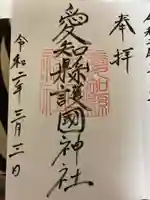 奉拝
愛知縣護國神社
令和二年三月三日